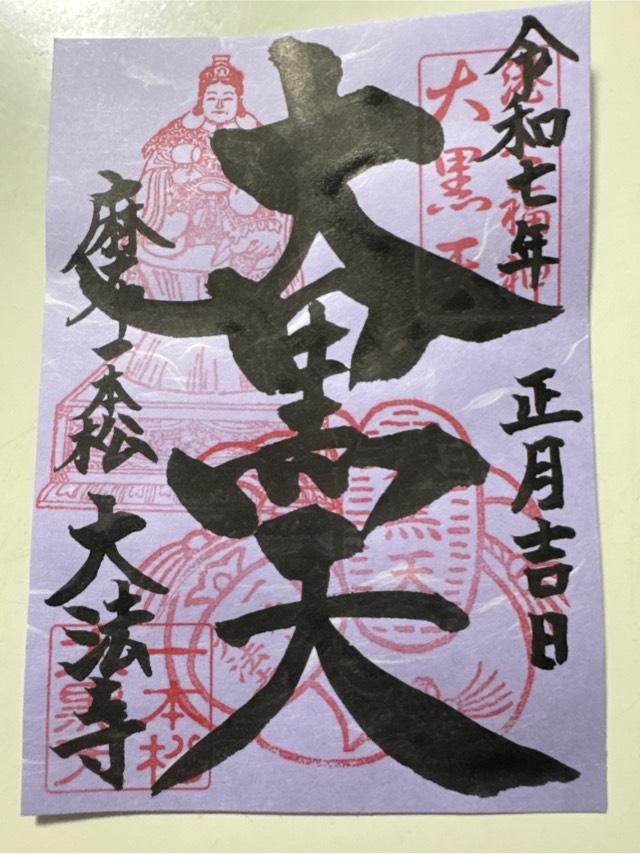 令和七年 正月吉日
大黒天
麻布一本松 大法寺
大黒天
七福神
黒天
一本松
大黒天